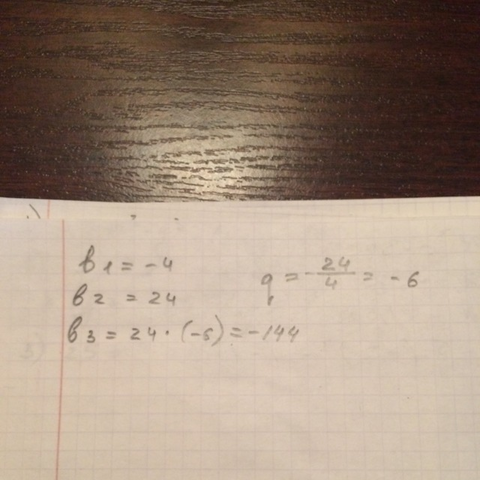 в1 = -4
в2 = 24
q = -24/4 = -6
в3 = 24 · (-6) = -144